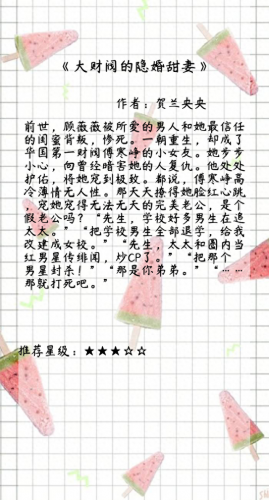 《大财阀的隐婚甜妻》
作者：贺兰央央
前世，顾薇薇被所爱的男人和她最信任
的闺蜜背叛，惨死。一朝重生，却成了
华国第一财阀傅寒峥的小女友。她步步
小心，向曾经暗害她的人复仇。他处处
护佑，将她宠到极致。都说，傅寒峥高
冷薄情无人性。那天天撩得她脸红心跳
，宠她宠得无法无天的完美老公，是个
假老公吗？“先生，学校好多男生在追
太太。”“把学校男生全部退学，给我
改建成女校。”“先生，太太和圈内当
红男星传绯闻，炒CP了。”“把那个
男星封杀！”“那是你弟弟。”“……
那就打死吧。”
推荐星级：★★★☆☆